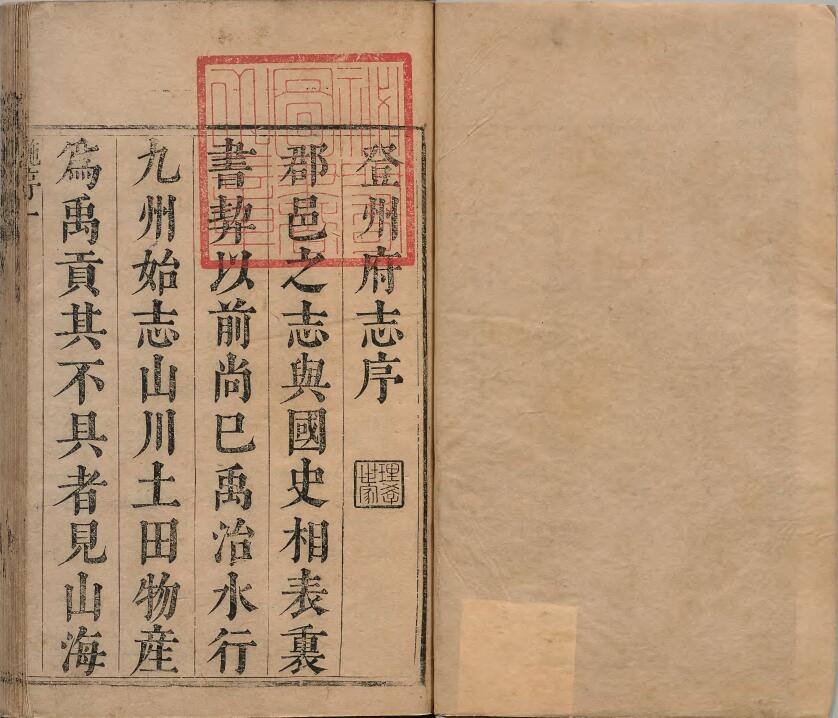 登州府志序
理學世家
郡邑之志與國史相表裏
書契以前尚巳禹治水行
九州始志山川土田物産
為禹貢其不具者見山海